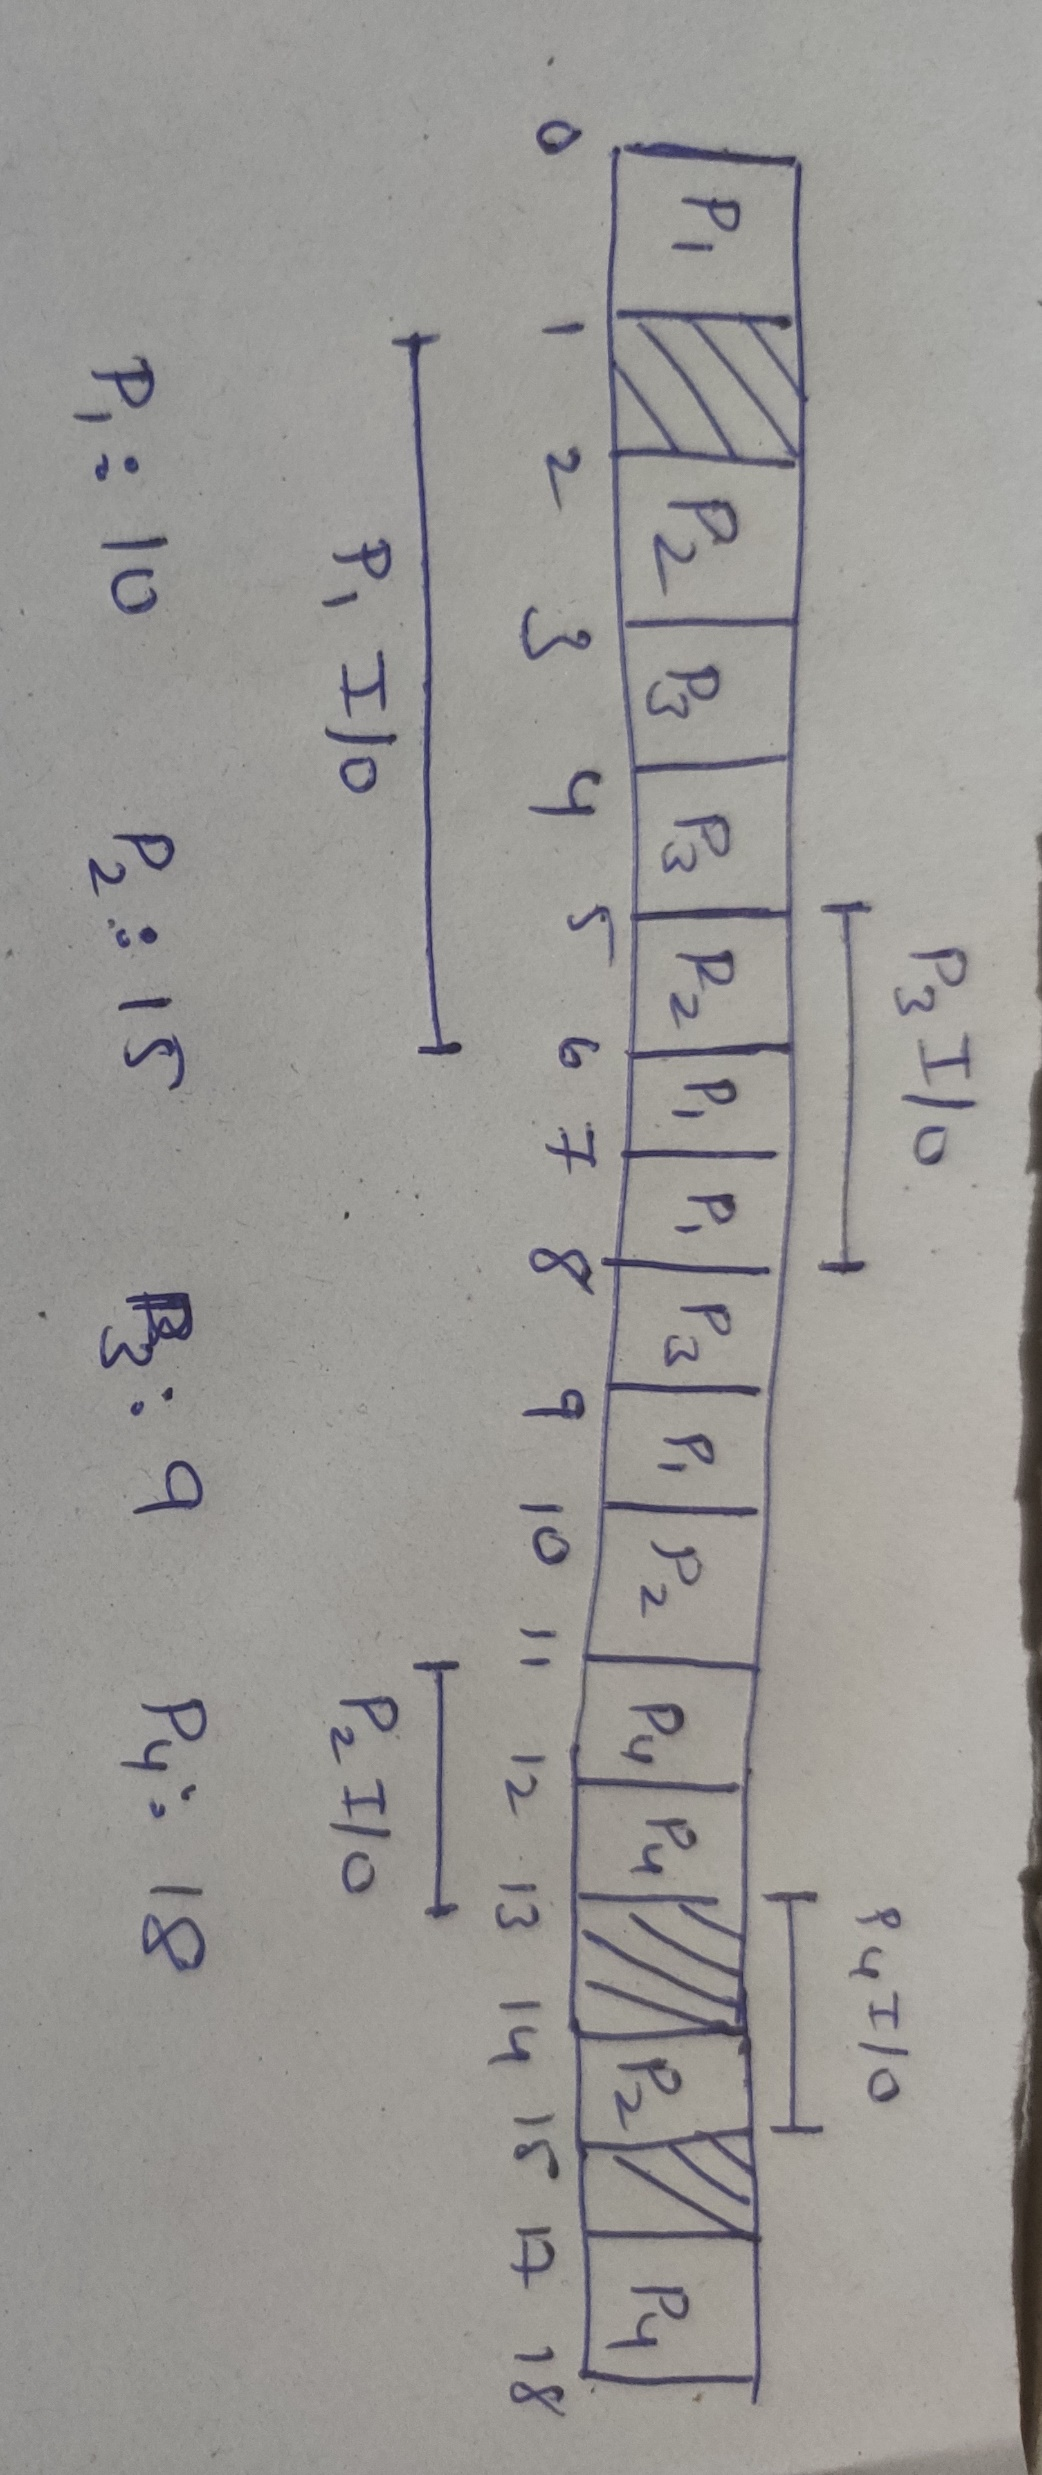 P3 I/O P4 I/O
P1 P2 P3 P3 P2 P1 P1 P3 P1 P2 P4 P4 P2 P4
0 1 2 3 4 5 6 7 8 9 10 11 12 13 14 15 17 18
P1 I/O P2 I/O
P1: 10 P2: 15 P3: 9 P4: 18